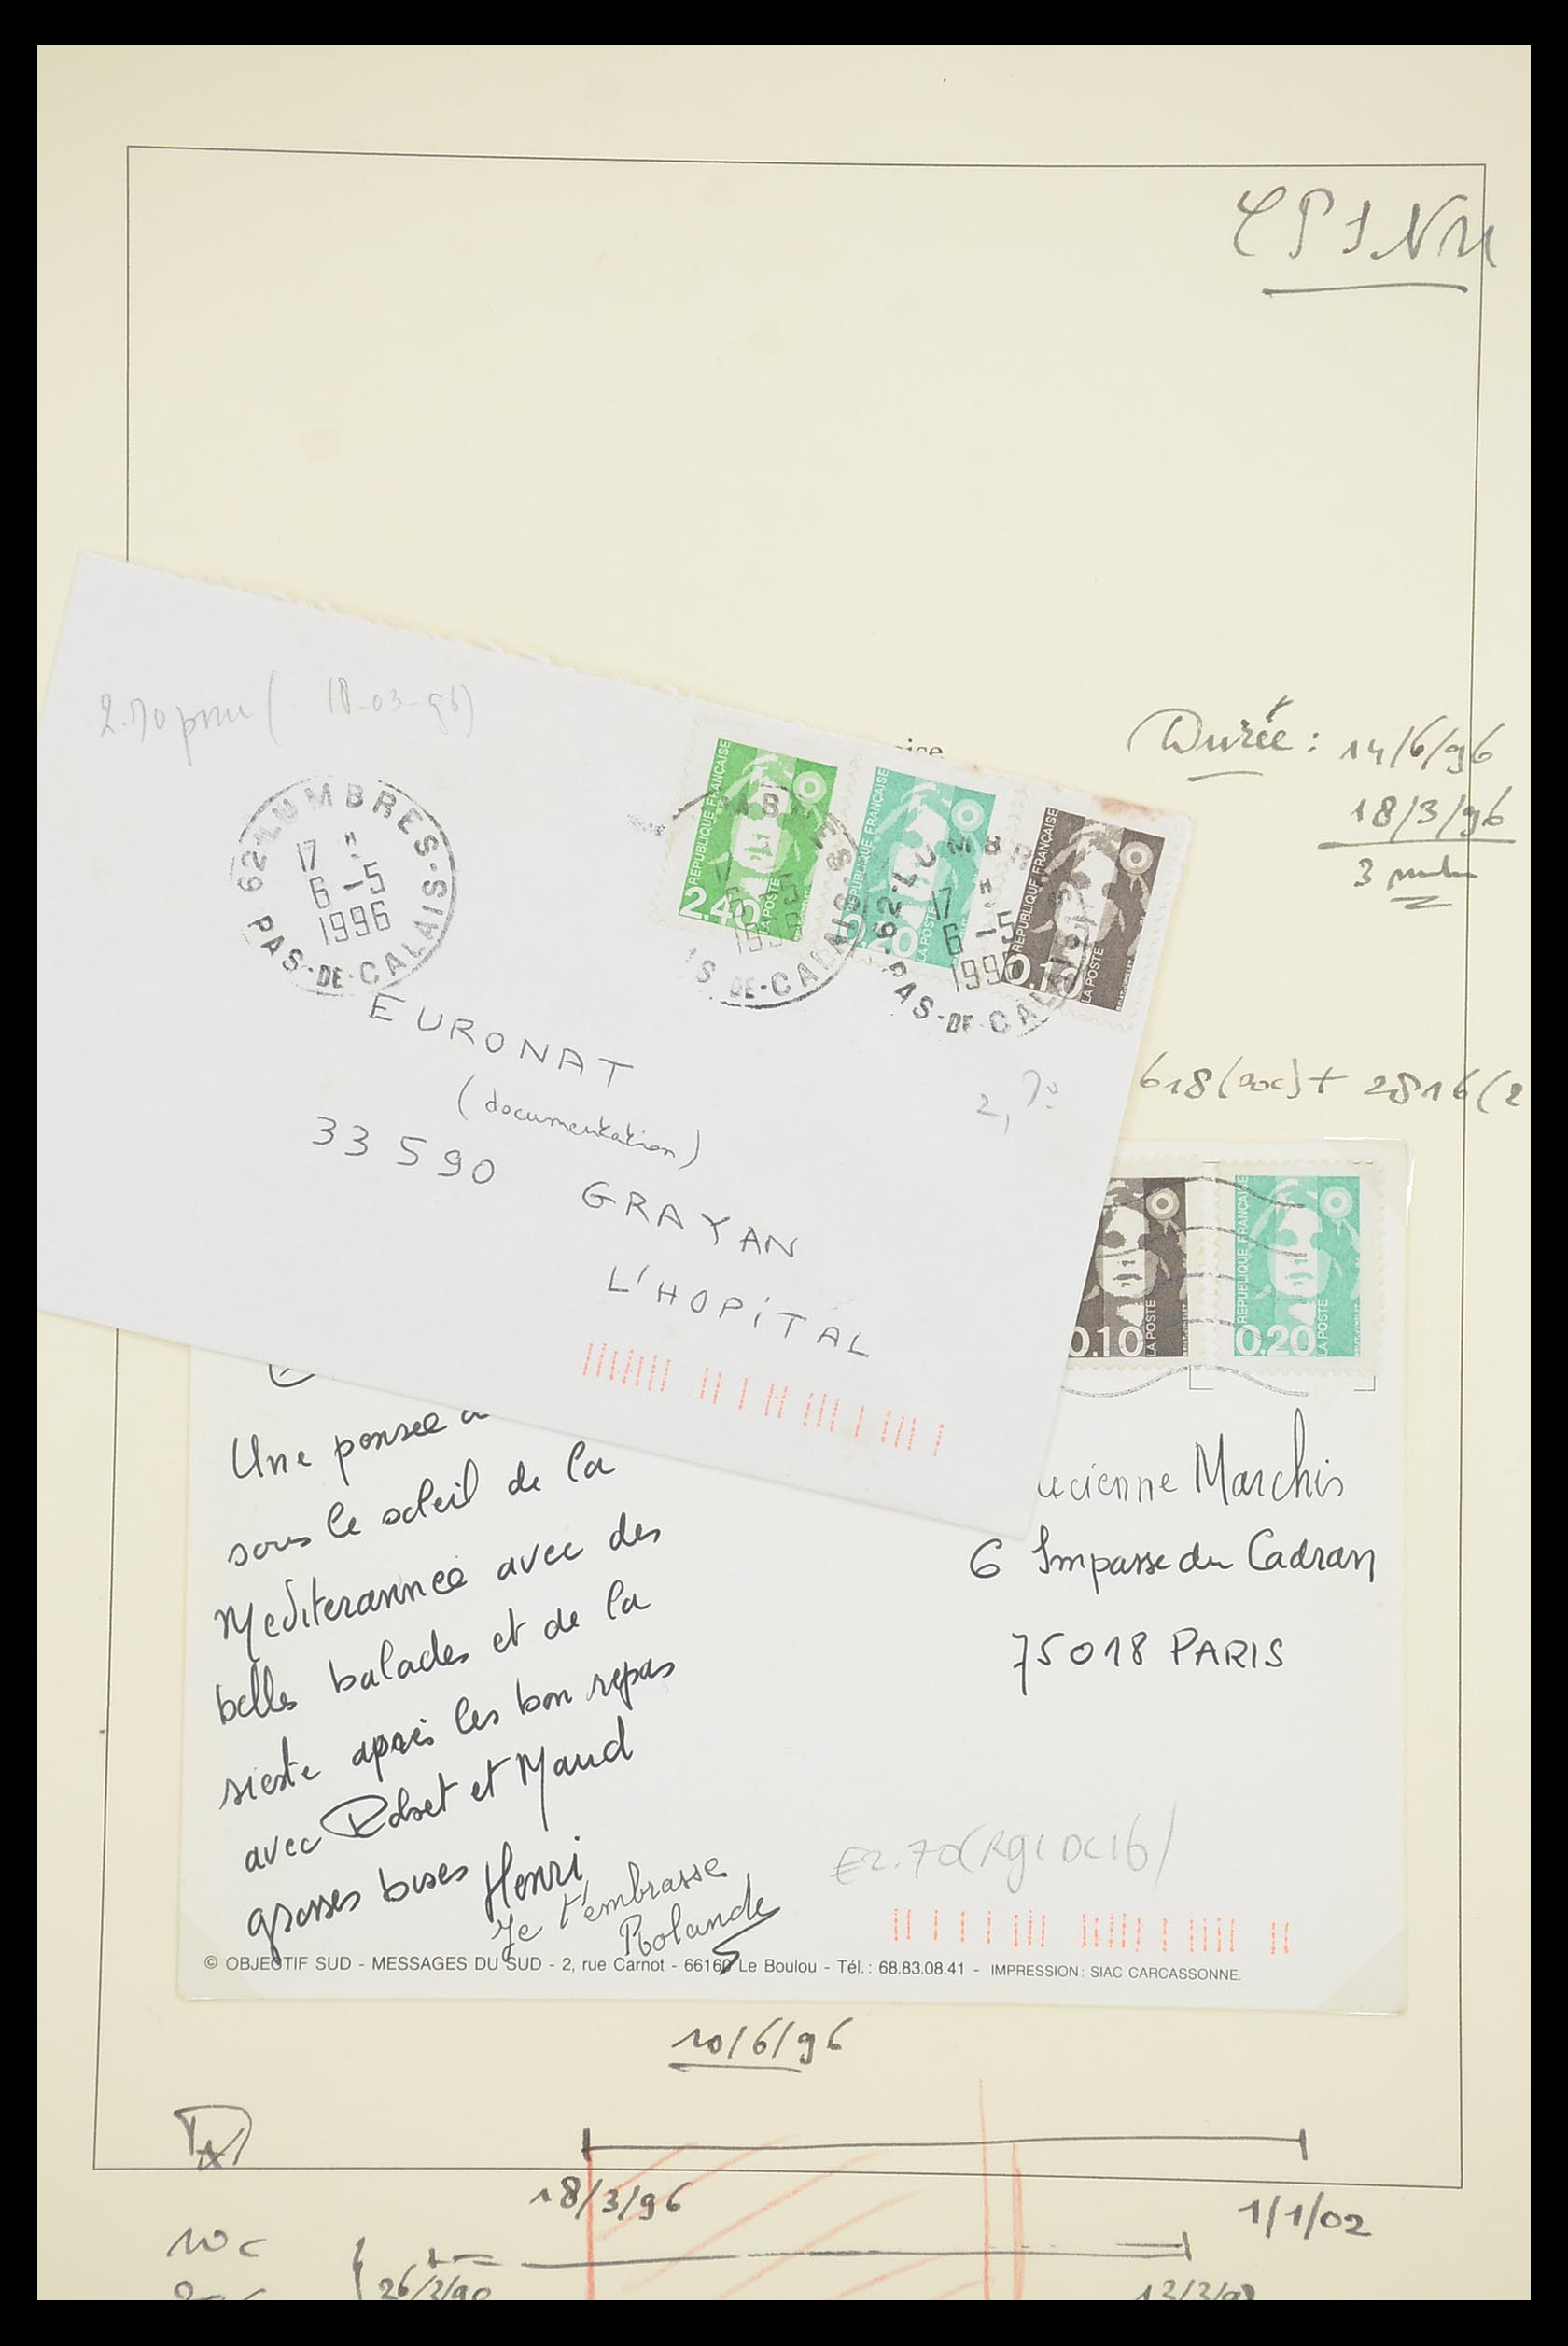 Durée : 14/6/96
18/3/96
3
2.70 pour ( 18-03-96)
62 LUMBRES
17 H
6 -5
1996
PAS-DE-CALAIS
REPUBLIQUE FRANÇAISE
2.40
LA POSTE
REPUBLIQUE FRANÇAISE
0.20
LA POSTE
REPUBLIQUE FRANÇAISE
0.10
LA POSTE
62-LUM
17 H
6 -5
1996
PAS-DE-CALAIS
EURONAT
(documentation)
33 590 GRAYAN
L'HOPITAL
2,70
618 (20c) + 2816 (2
0.10
LA POSTE
REPUBLIQUE FRANÇAISE
0.20
LA POSTE
Une pensée
sous le soleil de la
Mediterannée avec des
belles balades et de la
sieste après les bon repas
avec et Maud
grosses bises Henri
Je t'embrasse
Rolande
ucienne Marchis
6 Impasse du Cadran
75018 PARIS
© OBJECTIF SUD - MESSAGES DU SUD - 2, rue Carnot - 66160 Le Boulou - Tél. : 68.83.08.41 - IMPRESSION : SIAC CARCASSONNE.
10/6/96
18/3/96
1/1/02
10 c
26/3/90